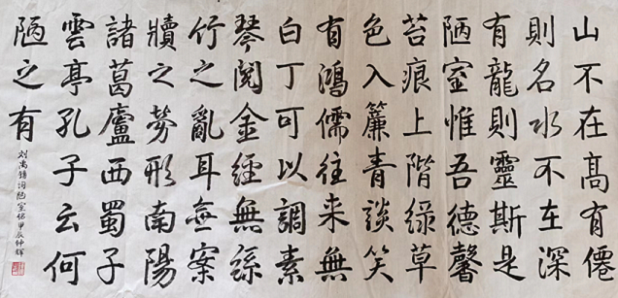 山不在高有僊
則名水不在深
有龍則靈斯是
陋室惟吾德馨
苔痕上階緑草
色入簾青談笑
有鴻儒往来無
白丁可以調素
琴閲金經無絲
竹之亂耳無案
牘之勞形南陽
諸葛廬西蜀子
雲亭孔子云何
陋之有
刘禹錫陋室銘甲辰